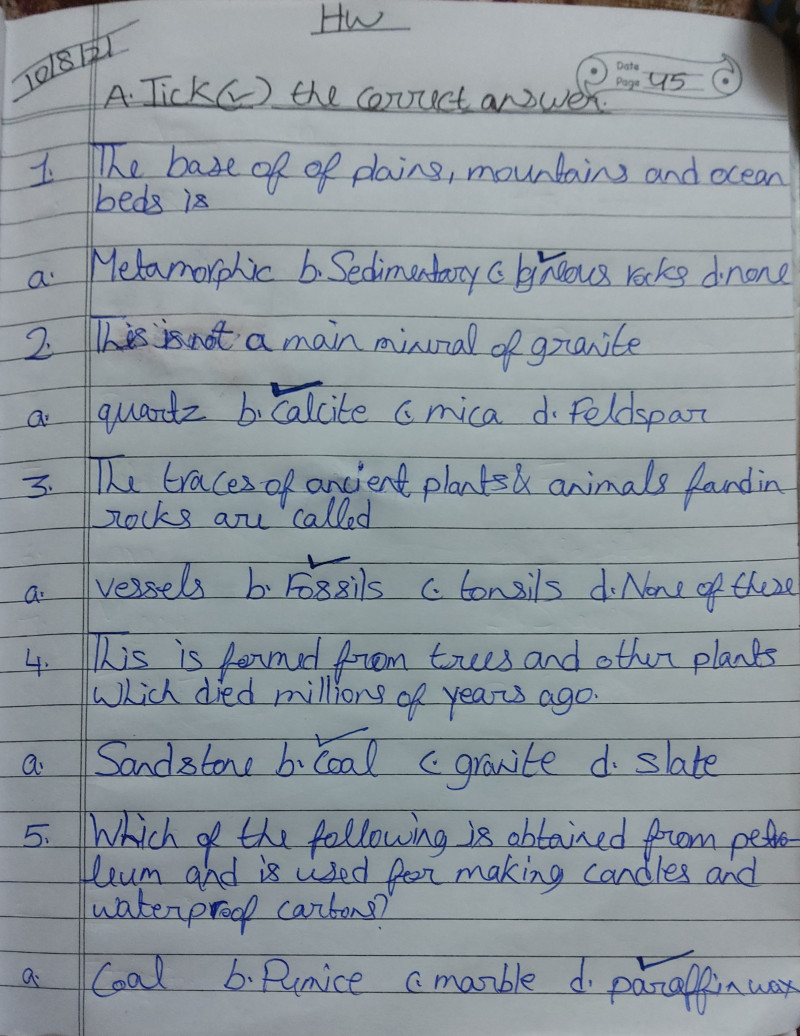 HW
10/8/21
Date
Page 45
A. Tick (✓) the correct answer.
1. The base of of plains, mountains and ocean
beds is
a. Metamorphic b. Sedimentary c. Igneous rocks d. none
2. This is not a main mineral of granite
a. quartz b. Calcite c. mica d. Feldspar
3. The traces of ancient plants & animals fandin
rocks are called
a. vessels b. Fossils c. tonsils d. None of these
4. This is formed from trees and other plants
which died millions of years ago.
a. Sandstone b. Coal c. granite d. slate
5. Which of the following is obtained from petro-
leum and is used for making candles and
waterproof cartons?
a. Coal b. Pumice c. marble d. paraffin wax